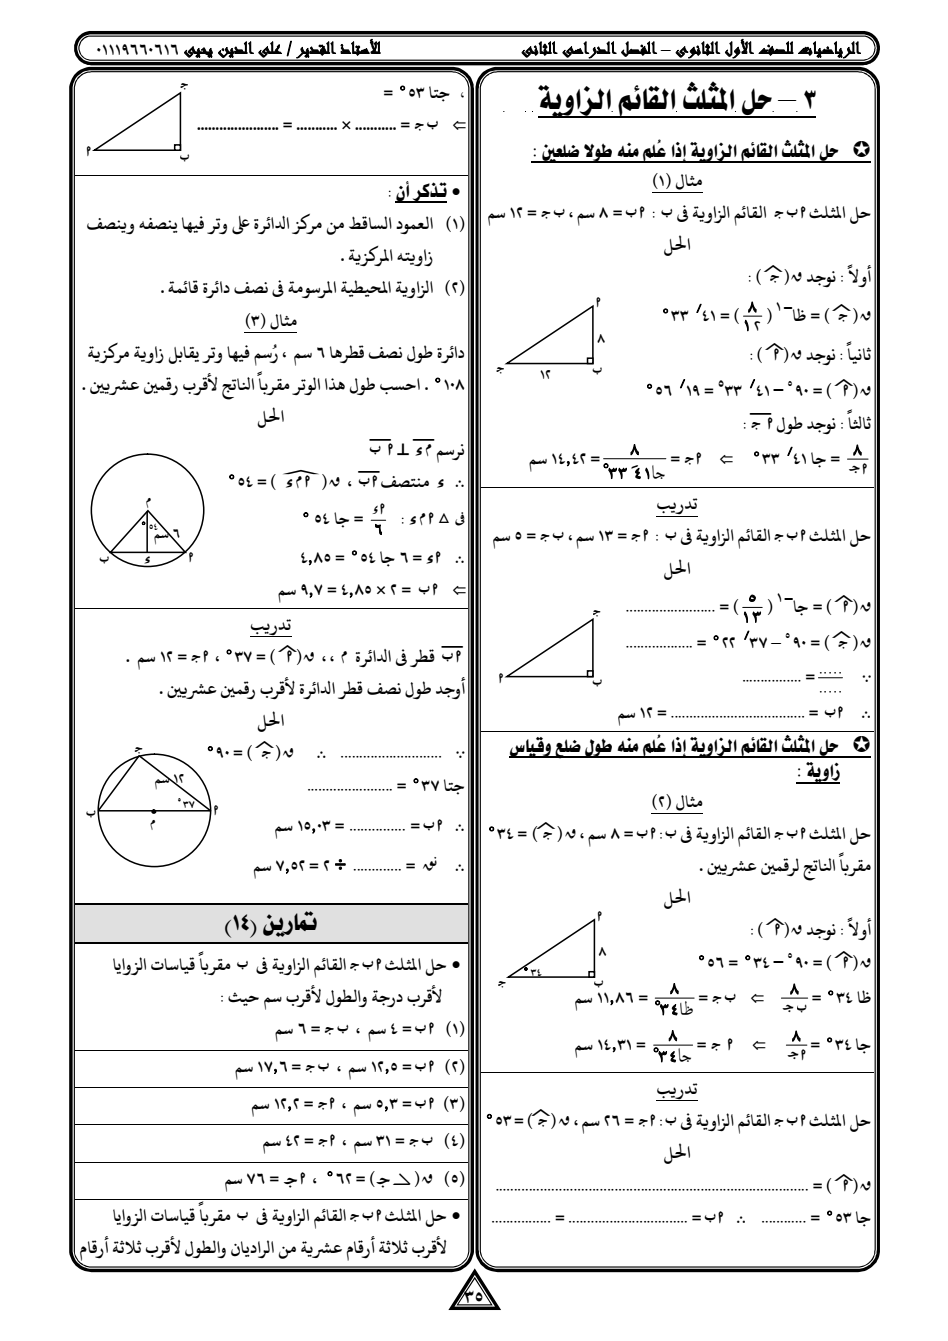 الرياضيات للصف الأول الثانوى – الفصل الدراسى الثانى
للأستاذ القدير / على الدين يحيى ٠١١١٩٦٦٠٦١٦
٣ – حل المثلث القائم الزاوية
✪ حل المثلث القائم الزاوية إذا عُلم منه طولا ضلعين :
مثال (١)
حل المثلث ا ب جـ القائم الزاوية فى ب : ا ب = ٨ سم ، ب جـ = ١٢ سم
الحل
أولاً : نوجد ق(جـ) :
ق(جـ) = ظا⁻¹ (٨/١٢) = ٤١′ ٣٣°
ا
٨
ب
١٢
جـ
ثانياً : نوجد ق(ا) :
ق(ا) = ٩٠° – ٤١′ ٣٣° = ١٩′ ٥٦°
ثالثاً : نوجد طول ا جـ :
٨/ا جـ = جا ٤١′ ٣٣° ⇐ ا جـ = ٨/جا ٤١′ ٣٣° = ١٤,٤٢ سم
تدريب
حل المثلث ا ب جـ القائم الزاوية فى ب : ا جـ = ١٣ سم ، ب جـ = ٥ سم
الحل
ق(ا) = جا⁻¹ (٥/١٣) = ........................
ق(جـ) = ٩٠° – ٣٧′ ٢٢° = ..................
جـ
ب
ا
∵ ...../..... = ................
∴ ا ب = .................................... = ١٢ سم
✪ حل المثلث القائم الزاوية إذا عُلم منه طول ضلع وقياس
زاوية :
مثال (٢)
حل المثلث ا ب جـ القائم الزاوية فى ب : ا ب = ٨ سم ، ق(جـ) = ٣٤°
مقرباً الناتج لرقمين عشريين .
الحل
أولاً : نوجد ق(ا) :
ق(ا) = ٩٠° – ٣٤° = ٥٦°
ا
٨
٣٤°
ب
جـ
ظا ٣٤° = ٨/ب جـ ⇐ ب جـ = ٨/ظا ٣٤° = ١١,٨٦ سم
جا ٣٤° = ٨/ا جـ ⇐ ا جـ = ٨/جا ٣٤° = ١٤,٣١ سم
تدريب
حل المثلث ا ب جـ القائم الزاوية فى ب : ا جـ = ٢٦ سم ، ق(جـ) = ٥٣°
الحل
ق(ا) = ....................................................................................
جا ٥٣° = ............ ∴ ا ب = ................................ = ................
، جتا ٥٣° =
⇐ ب جـ = ........... × ........... = ......................
جـ
ب
ا
• تذكر أن :
(١) العمود الساقط من مركز الدائرة على وتر فيها ينصفه وينصف
زاويته المركزية .
(٢) الزاوية المحيطية المرسومة فى نصف دائرة قائمة .
مثال (٣)
دائرة طول نصف قطرها ٦ سم ، رُسم فيها وتر يقابل زاوية مركزية
١٠٨° . احسب طول هذا الوتر مقرباً الناتج لأقرب رقمين عشريين .
الحل
نرسم م ء ⊥ ا ب
∴ ء منتصف ا ب ، ق(ا م ء) = ٥٤°
فى △ ا م ء : ا ء/٦ = جا ٥٤°
م
٥٤°
٦ سم
ا
ء
ب
∴ ا ء = ٦ جا ٥٤° = ٤,٨٥
⇐ ا ب = ٢ × ٤,٨٥ = ٩,٧ سم
تدريب
ا ب قطر فى الدائرة م ، ، ق(ا) = ٣٧° ، ا جـ = ١٢ سم .
أوجد طول نصف قطر الدائرة لأقرب رقمين عشريين .
الحل
∵ ........................... ∴ ق(جـ) = ٩٠°
جتا ٣٧° = .......................
جـ
١٢ سم
٣٧°
ا
م
ب
∴ ا ب = ............... = ١٥,٠٣ سم
∴ نق = ............. ÷ ٢ = ٧,٥٢ سم
تمارين (١٤)
• حل المثلث ا ب جـ القائم الزاوية فى ب مقرباً قياسات الزوايا
لأقرب درجة والطول لأقرب سم حيث :
(١) ا ب = ٤ سم ، ب جـ = ٦ سم
(٢) ا ب = ١٢,٥ سم ، ب جـ = ١٧,٦ سم
(٣) ا ب = ٥,٣ سم ، ا جـ = ١٢,٢ سم
(٤) ب جـ = ٣١ سم ، ا جـ = ٤٢ سم
(٥) ق(∠ جـ) = ٦٢° ، ا جـ = ٧٦ سم
• حل المثلث ا ب جـ القائم الزاوية فى ب مقرباً قياسات الزوايا
لأقرب ثلاثة أرقام عشرية من الراديان والطول لأقرب ثلاثة أرقام
٣٥